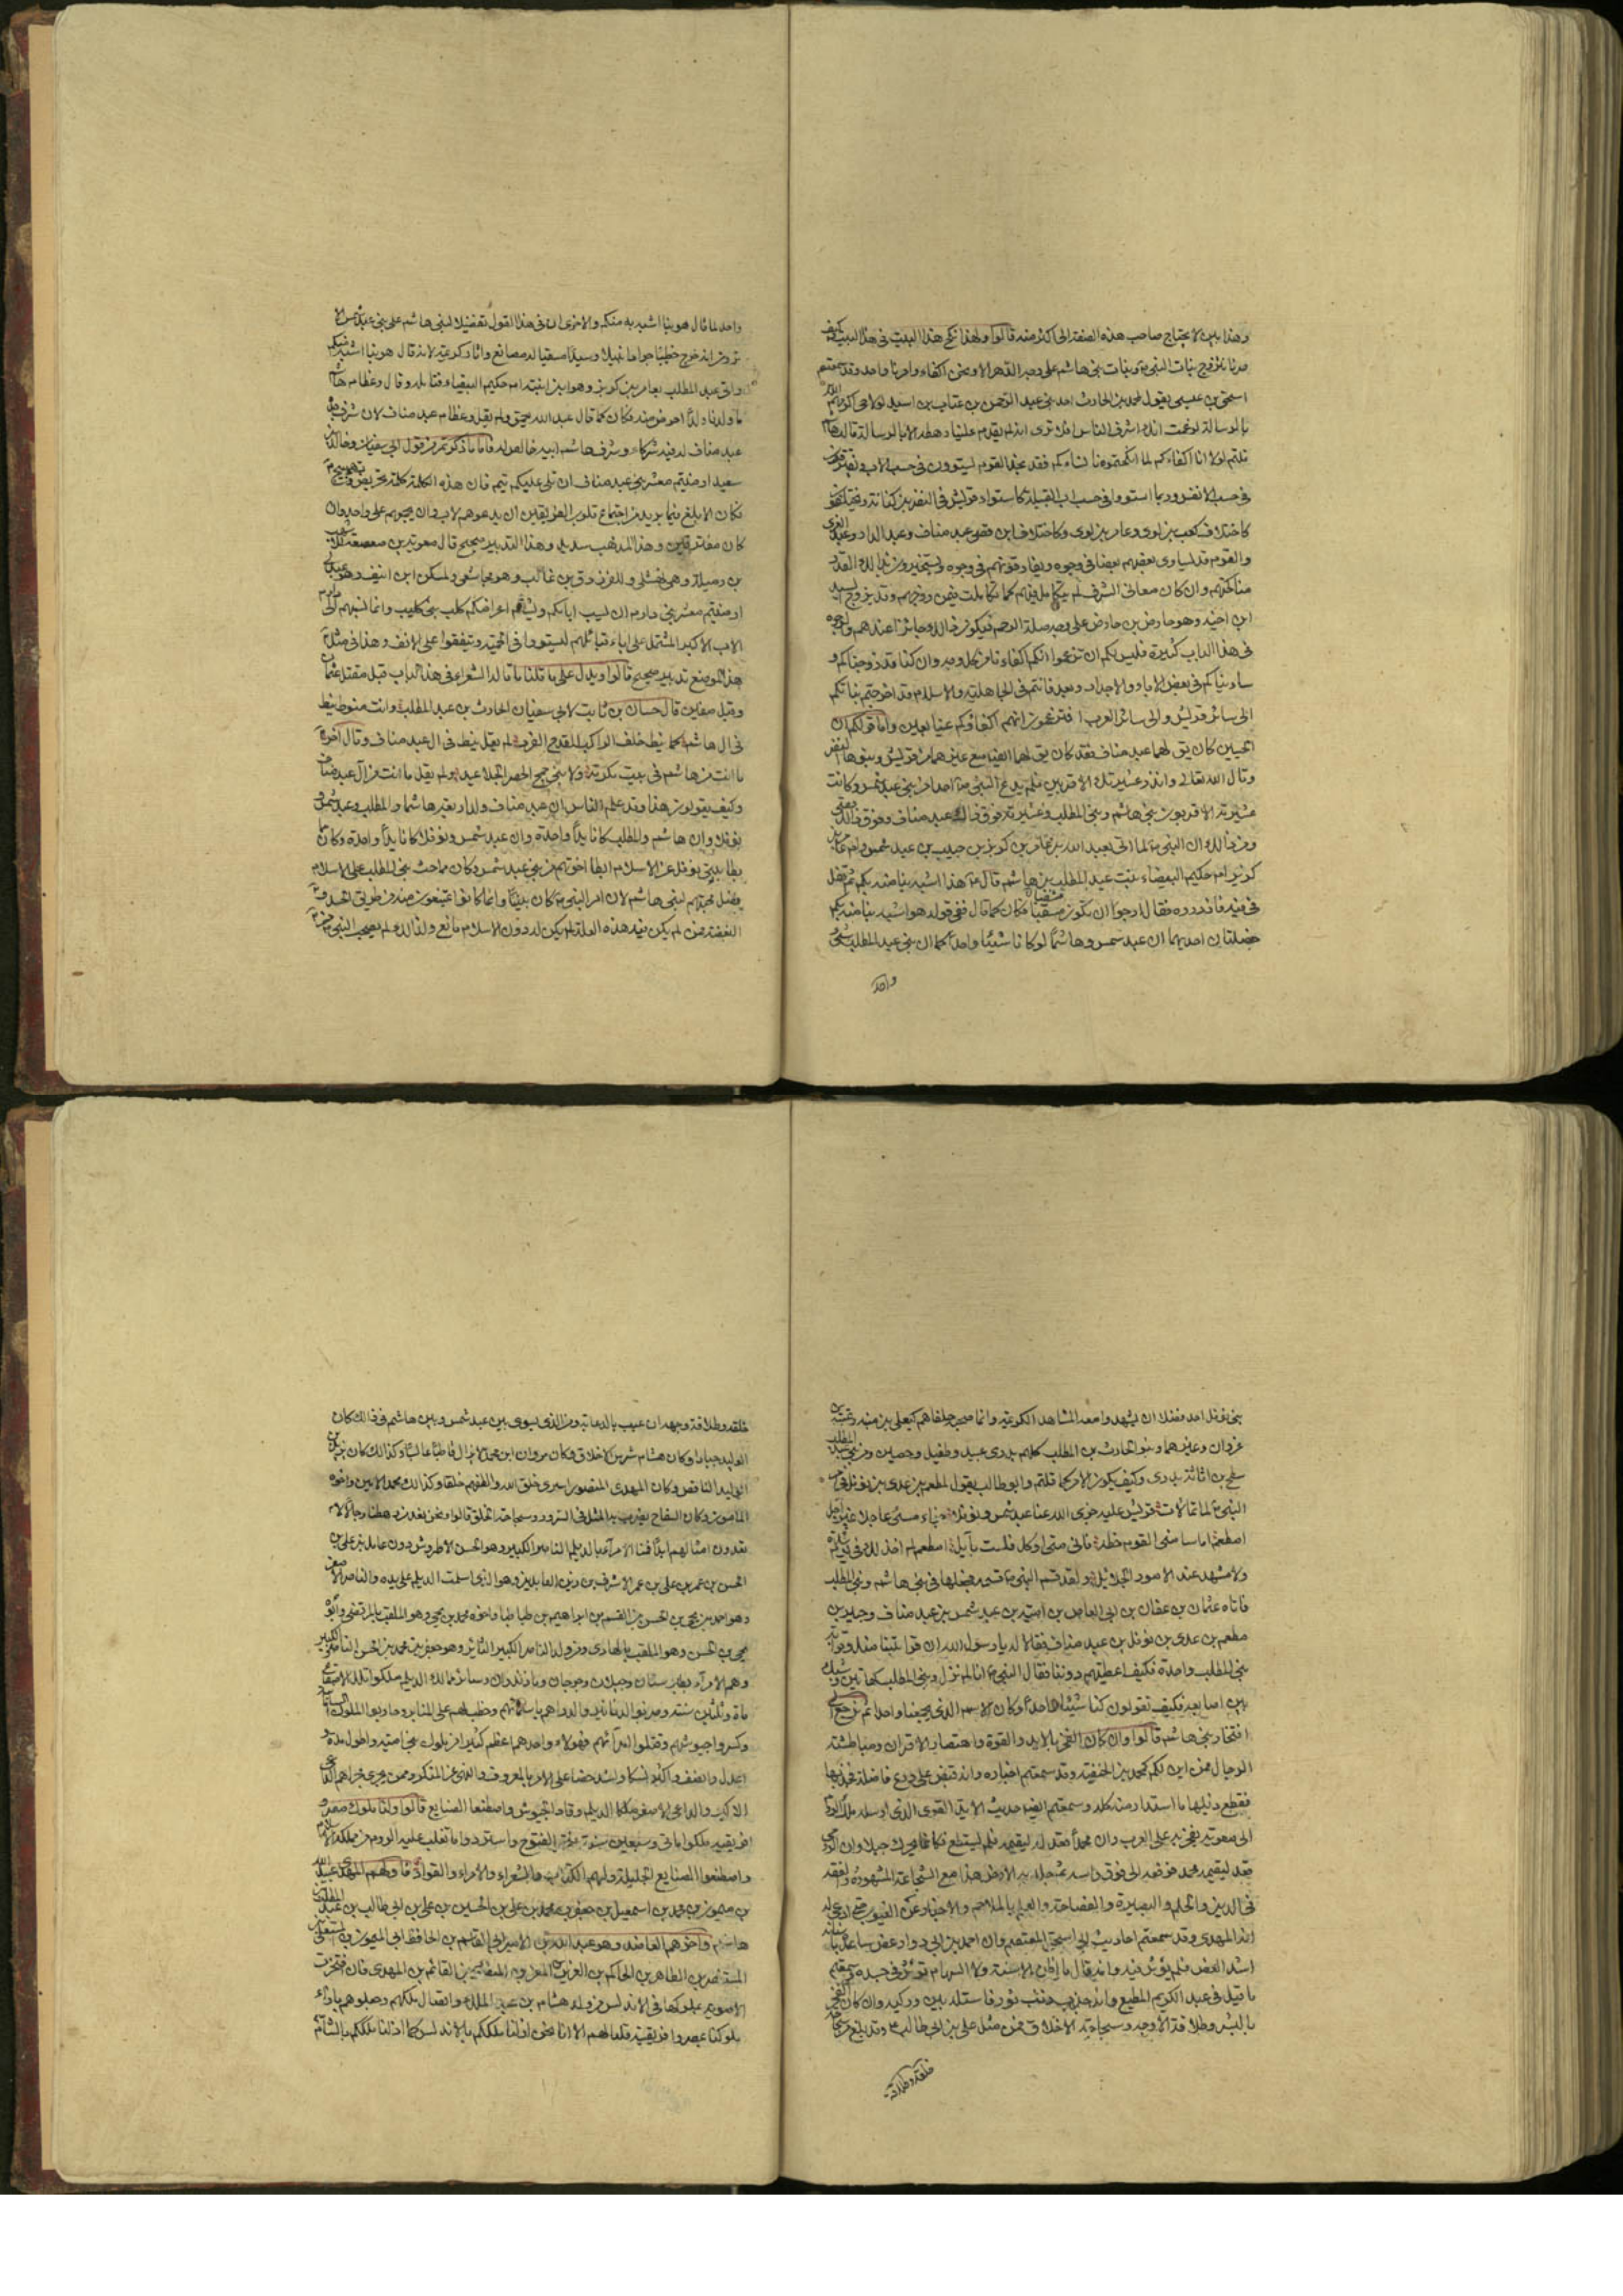 وهذا بين لا يحتاج صاحب هذه الصفة الى اكثر منه قالوا ولهذا نكح هذا البيت في هذا البيت فكيف
صرنا نتزوج بنات النبي ص وبنات بني هاشم على وجه الدهر الا ونحن اكفاء وامرنا واحد وقد سمعتم
اسحق بن عيسى يقول لمحمد بن الحارث احد بني عبد الرحمن بن عتاب بن اسيد لولا حي اكرمهم الله
بالرسالة لزعمت انك اشرف الناس افلا ترى انه لم يقدم علينا رهطه الا بالرسالة قالت هاشم
قلتم لولا انا اكفاءكم لما انكحتمونا نساءكم فقد نجد القوم يستوون في حسب الاب ويفترقون
في حسب الانفس وربما استووا في حسب ابي القبيلة كاستواء قريش في النضر بن كنانة ويختلفون
كاختلاف كعب بن لوي وعامر بن لوي وكاختلاف ابن قصي عبد مناف وعبد الدار وعبد العزى
والقوم قد يساوي بعضهم بعضا في وجوه ويفارقونهم في وجوه ويستجيزون بذلك القدر
مناكحتهم وان كان معاني الشرف لم يتكامل فيهم كما تكاملت فيمن زوجهم وقد يزوج السيد
ابن اخيه وهو حارض بن حارض على وجه صلة الرحم فيكون ذلك جائزا عندهم ولوجوه
في هذا الباب كثيرة فليس لكم ان تزعموا انكم اكفاءنا من كل وجه وان كنا قد زوجناكم و
ساويناكم في بعض الاباء والاجداد وبعد فانتم في الجاهلية والاسلام قد اخرجتم بناتكم
الى سائر قريش والى سائر العرب افتزعمون انهم اكفاؤكم عينا بعين واما قولكم ان
الحيين كان يق لهما عبد مناف فقد كان يق لهما ايضا مع غيرهما من قريش وبنيها النضر
وقال الله تعالى وانذر عشيرتك الاقربين فلم يدع النبي ص احدا من بني عبد شمس وكانت
عشيرته الاقربون بني هاشم وبني المطلب وعشيرته فوق ذلك عبد مناف وفوق ذلك قصي
ومن ذلك ان النبي ص لما اتي بعبد الله بن عامر بن كريز بن حبيب بن عبد شمس وام عامر بن
كريز ام حكيم البيضاء بنت عبد المطلب بن هاشم قال ص هذا اشبه بنا منه بكم ثم تفل
في فيه فازدرده فقال ارجوا ان تكون مسقيا فكان كما قال ففي قوله هو اشبه بنا منه بكم
خصلتان احديهما ان عبد شمس وهاشما لو كانا شيئا واحدا كما ان بني عبد المطلب شيء
واحد
واحد لما قال هو بنا اشبه به منكم والاخرى ان في هذا القول تفضيلا لبني هاشم على بني عبد شمس الا
ترون انه خرج خطيبا جوادا نبيلا وسيدا مسقيا له مصانع واثار كريمة لانه قال هو بنا اشبه منكم
واتى عبد المطلب بعامر بن كريز وهو ابن ابنته ام حكيم البيضاء فتامله وقال وعظام هاشم
ما ولدنا ولدا احرض منه فكان كما قال عبد الله يحمق ولم يقل وعظام عبد مناف لان شرف جده
عبد مناف له فيه شركاء وشرف هاشم ابيه خالص له فاما ما ذكرتم من قول ابي سفيان وخالد بن
سعيد ارضيتم معشر بني عبد مناف ان تلي عليكم تيم فان هذه الكلمة كلمة تحريض وتهييج
فكان الابلغ فيما يريد من اجتماع قلوب الفريقين ان يدعوهم لاب وان يجمعهم على واحد وان
كان مفترقين وهذا المذهب سديد وهذا التدبير صحيح قال معوية بن صعصعة للاشهب
بن رميلة وهو نهشلي وللفرزدق بن غالب وهو مجاشعي ولمسكن ابن انيف وهو عبدلي
ارضيتم معشر بني دارم ان يسب اباءكم ويشتم اعراضكم كلب بني كليب وانما نسبهم الى دارم
الاب الاكبر المشتمل على اباء قبائلهم ليستووا في الحمية ويتفقوا على الانف وهذا في مثل
هذا الموضع تدبير صحيح قالوا ويدل على ما قلنا ما قاله الشعراء في هذا الباب قبل مقتل عثمان
وقبل صفين قال حسان بن ثابت لابي سفيان الحارث بن عبد المطلب وانت منوط نيط
في ال هاشم كما نيط خلف الراكب القدح الفرد لم يقل نيط في ال عبد مناف وقال اخر
ما انت من هاشم في بيت مكرمة ولا بني جمح الخضر الجلاعيد ولم يقل ما انت من آل عبد مناف
وكيف يقولون هذا وقد علم الناس ان عبد مناف ولد اربعة هاشما والمطلب وعبد شمس و
نوفلا وان هاشم والمطلب كانا يدا واحدة وان عبد شمس ونوفلا كانا يدا واحدة وكان مما
بطا ببني نوفل عن الاسلام ابطا اخوتهم من بني عبد شمس وكان مما حث بني المطلب على الاسلام
فضل محبتهم لبني هاشم لان امر النبي ص كان بينا وانما كانوا يمتنعون منه من طريق الحسد و
البغضة فمن لم يكن فيه هذه العلة لم يكن له دون الاسلام مانع ولذلك لم يصحب النبي ص من
بني نوفل احد فضلا ان يشهد وامعه المشاهد الكريمة وانما صحبه حلفاهم كيعلى بن منبه وعتبة بن
غزوان وغيرهما وبنو الحارث بن المطلب كلهم بدري عبيد وطفيل وحصين ومن بني المطلب
مسطح بن اثاثة بدري وكيف يكون الامر كما قلتم وابو طالب يقول لمطعم بن عدي بن نوفل في امر
النبي ص لما تمالات قريش عليه جزى الله عنا عبد شمس ونوفلا جزاء مسيء عاجلا غير آجل
امطعم اما سامني القوم خطة فاني متى اوكل فلست بآيل امطعم لم اخذلك في يوم شدة
ولا مشهد عند الامور الجلائل ولقد قسم النبي ص قسمة فجعلها في بني هاشم وبني المطلب
فاتاه عثمان بن عفان بن ابي العاص بن امية بن عبد شمس بن عبد مناف وجبير بن
مطعم بن عدي بن نوفل بن عبد مناف فقالا له يا رسول الله ان قرابتنا منك وقرابة
بني المطلب واحدة فكيف اعطيتهم دوننا فقال النبي ص انا لم نزل وبني المطلب كهاتين وشبك
بين اصابعه فكيف تقولون كنا شيئا واحدا وكان الاسم الذي يجمعنا واحدا ثم نرجع الى
افتخار بني هاشم قالوا وان كان الفخر بالايد والقوة واهتصار الاقران ومباطشة
الرجال فمن اين لكم كمحمد بن الحنفية وقد سمعتم اخباره وانه قبض على درع فاضلة فجذبها
فقطع ذيلها ما استدار منه كله وسمعتم ايضا حديث الايد القوي الذي ارسله ملك الروم
الى معوية يفخر به على العرب وان محمدا قعد له ليقيمه فلم يستطع فكانما يحرك جبلا وان الرومي
قعد ليقيمه محمد فرفعه الى فوق راسه ثم جلد به الارض هذا مع الشجاعة المشهورة والفقه
في الدين والحلم والبصيرة والفصاحة والعلم بالملاحم والاخبار عن الغيوب حتى ادعي له
انه المهدي وقد سمعتم احاديث ابي اسحق المعتصم وان احمد بن ابي دواد عض ساعده باسنانه
اشد العض فلم يؤثر فيه وانه قال ما اظن الاسنة ولا السهام تؤثر في جسده وسمعتم
ما قيل في عبد الكريم المطيع وانه جذب ذنب ثور فاستله بين وركيه وان كان الفخر
بالبشر وطلاقة الاوجه وسجاحة الاخلاق فمن مثل علي بن ابي طالب ع وقد بلغ من سجاحة
خلقه وطلاقة
خلقه وطلاقة وجهه ان عيب بالدعابة ومن الذي يسوي بين عبد شمس وبين هاشم في ذلك كان
الوليد جبارا وكان هشام شرس الاخلاق وكان مروان ابن محمد لا يزال قاطبا عابسا وكذلك كان يزيد بن
الوليد الناقص وكان المهدي المنصور اسرى خلق الله والطفهم خلقا وكذلك محمد الامين واخوه
المامون وكان السفاح يضرب به المثل في السرو وسجاحة الخلق قالوا ونحن نعد من رهطنا رجالا لا
تعدون امثالهم ابدا فمنا الامراء بالديلم الناصر الكبير وهو الحسن الاطروش دون عامل بن علي بن
الحسن بن عمر بن علي بن عمر الاشرف بن زين العابدين وهو الذي اسلمت الديلم على يده والناصر الاصغر
وهو احمد بن يحيى بن الحسن بن القسم بن ابراهيم بن طباطبا واخوه محمد بن يحيى وهو الملقب بالمرتضى وابوه
يحيى بن الحسن وهو الملقب بالهادي ومن ولد الناصر الكبير الثائر وهو جعفر بن محمد بن الحسن الناصر الكبير
وهم الامراء بطبرستان وجيلان وجرجان ومازندران وسائر ممالك الديلم ملكوا تلك الاصقاع
ماة وثلثين سنة وضربوا الدنانير والدراهم باسمائهم وخطب لهم على المنابر وحاربوا الملوك السامانية
وكسروا جيوشهم وقتلوا امرائهم فهؤلاء واحدهم اعظم كثيرا من ملوك بني امية واطول مدة و
اعدل وانصف واكثر نسكا واشد حضا على الامر بالمعروف والنهي عن المنكر وممن يجري مجراهم الداعي
الاكبر والداعي الاصغر ملكا الديلم وقادا الجيوش واصطنعا الصنايع قالوا ولنا ملوك مصر و
افريقية ملكوا ماتي وسبعين سنة فتحوا الفتوح واستردوا ما تغلب عليه الروم من مملكة الاسلام
واصطنعوا الصنايع الجليلة ولهم الكتاب والشعراء والامراء والقواد فاولهم المهدي عبيد الله
بن ميمون بن محمد بن اسمعيل بن جعفر بن محمد بن علي بن الحسين بن علي بن ابي طالب بن عبد المطلب
هاشم واخرهم العاضد وهو عبد الله بن الامير ابي القاسم بن الحافظ ابي الميمون بن المستعلي
المستنصر بن الطاهر بن الحاكم بن العزيز بن المعز بن المنصور بن القائم بن المهدي فان فخرت
الاموية بملوكها في الاندلس من ولد هشام بن عبد الملك واتصال ملكهم وجعلوهم بازاء
ملوكنا بمصر وافريقية قلنا لهم الا انا نحن ازلنا ملككم بالاندلس كما ازلنا ملككم بالشام